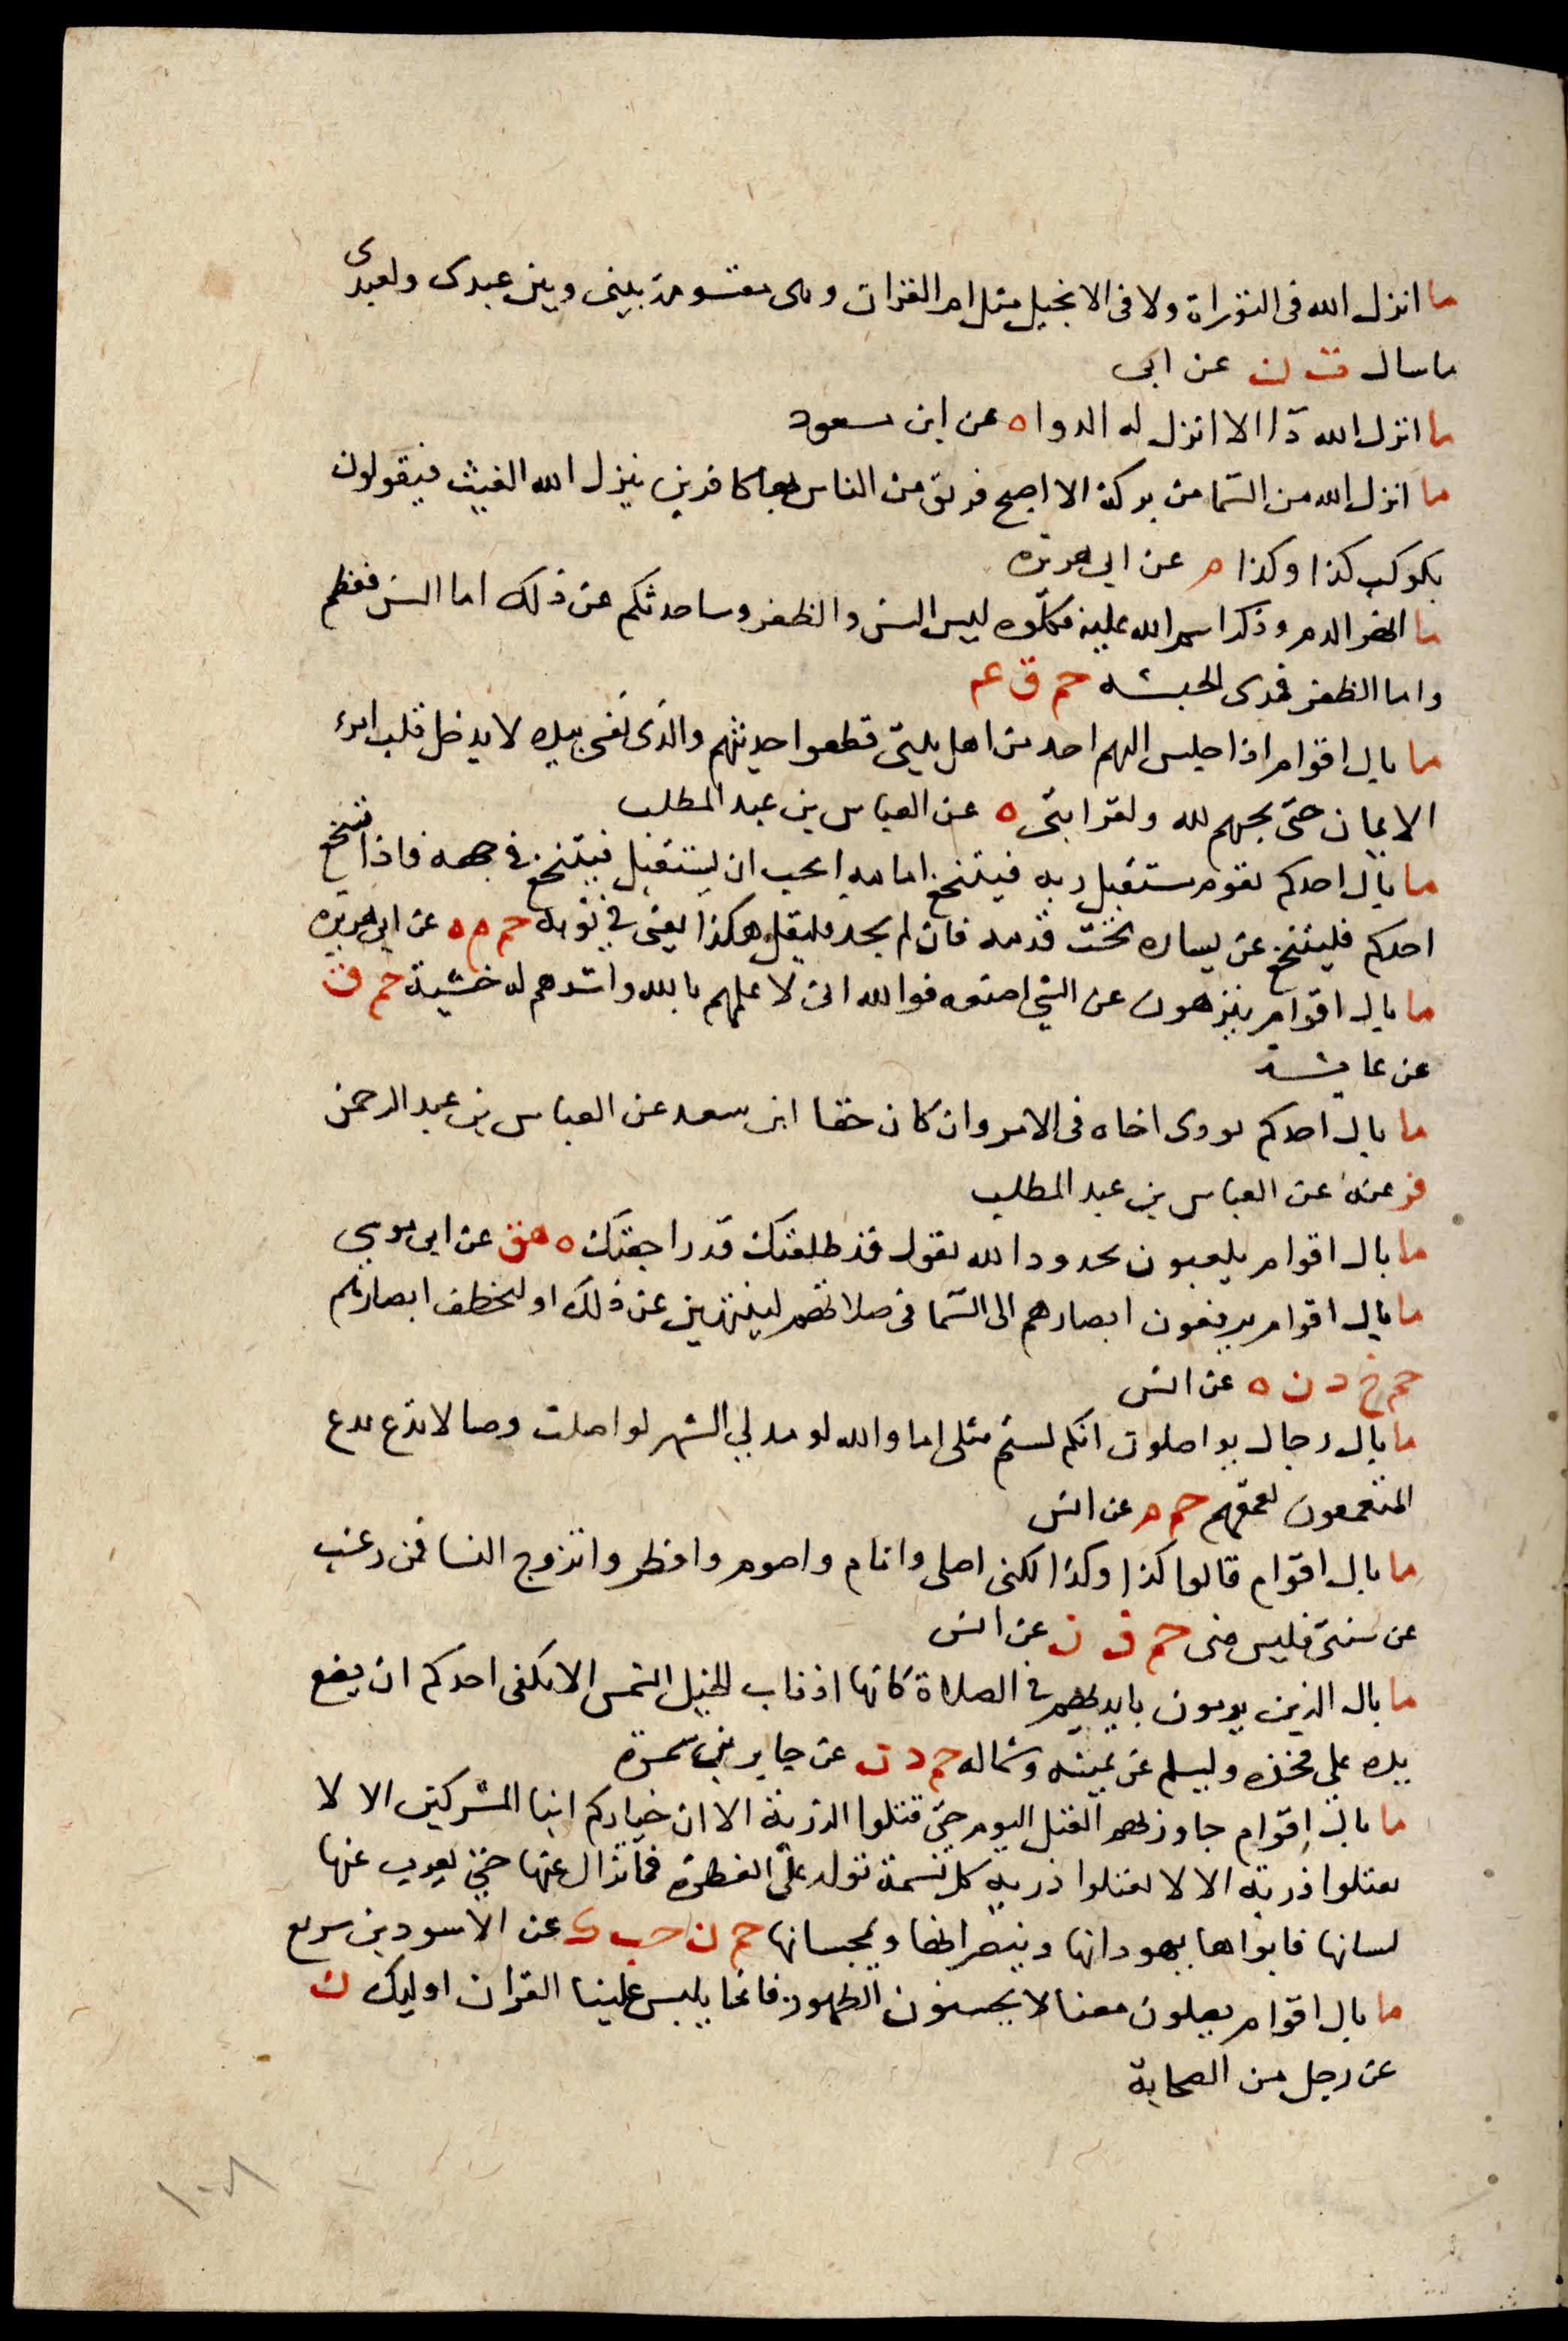 ما انزل الله فى التوراة ولا فى الانجيل مثل ام القران وهى مقسومة بينى وبين عبدى ولعبدى
ما سال ت ن عن ابى
ما انزل الله دآا الا انزل له الدوا ه عن ابن مسعود
ما انزل الله من السما من بركة الا اصبح فريق من الناس بها كافرين ينزل الله الغيث فيقولون
بكوكب كذا وكذا م عن ابى هريرة
ما انهر الدم وذكر اسم الله عليه فكلوه ليس السن والظفر وساحدثكم عن ذلك اما السن فعظم
واما الظفر فمدى الحبشه حم ق عم
ما بال اقوام اذا جلس اليهم احد من اهل بيتى قطعوا حديثهم والذى نفسى بيده لا يدخل قلب امرء
الايمان حتى يحبهم لله ولقرابتى ه عن العباس بن عبد المطلب
ما بال احدكم يقوم مستقبل ربه فيتنخع امامه ايحب ان يستقبل فيتنخع فى وجهه فاذا تنخع
احدكم فليتنخع عن يساره تحت قدمه فان لم يجد فليقل هكذا يعنى فى ثوبه حم م ه عن ابى هريرة
ما بال اقوام يتنزهون عن الشئ اصنعه فوالله انى لا علمهم بالله واشدهم له خشية حم ق
عن عايشة
ما بال احدكم يوذى اخاه فى الامر وان كان حقا ابن سعد عن العباس بن عبد الرحمن
عن العباس بن عبد المطلب
ما بال اقوام يلعبون بحدود الله يقول قد طلقتك قد راجعتك ه هق عن ابى موسى
ما بال اقوام يرفعون ابصارهم الى السما فى صلاتهم لينتهين عن ذلك او لتخطفن ابصارهم
حم خ د ن ه عن انس
ما بال رجال يواصلون انكم لستم مثلى اما والله لو مد لى الشهر لواصلت وصالا يدع
المتعمقون تعمقهم حم م عن انس
ما بال اقوام قالوا كذا وكذا لكنى اصلى وانام واصوم وافطر واتزوج النسا فمن رغب
عن سنتى فليس منى حم ق ن عن انس
ما بال الذين يومون بايديهم فى الصلاة كانها اذناب الخيل الشمس الا يكفى احدكم ان يضع
يده على فخذه وليسلم عن يمينه وشماله حم د ن عن جابر بن سمرة
ما بال اقوام جاوز بهم القتل اليوم حتى قتلوا الذرية الا ان خياركم ابنا المشركين الا لا
تقتلوا ذرية الا لا تقتلوا ذرية كل نسمة تولد على الفطرة فما تزال عنها حتى يعرب عنها
لسانها فابواها يهودانها وينصرانها ويمجسانها حم ن حب ك عن الاسود بن سريع
ما بال اقوام يصلون معنا لا يحسنون الطهور فانما يلبس علينا القران اوليك ن
عن رجل من الصحابة
١٠٨